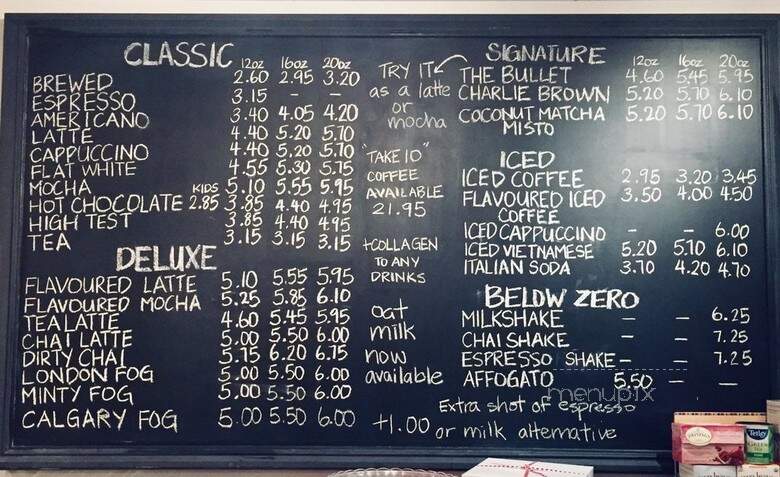 CLASSIC 12oz 16oz 20oz
BREWED 2.60 2.95 3.20
ESPRESSO 3.15 – –
AMERICANO 3.40 4.05 4.20
LATTE 4.40 5.20 5.70
CAPPUCCINO 4.40 5.20 5.70
FLAT WHITE 4.55 5.30 5.75
MOCHA 5.10 5.55 5.95
HOT CHOCOLATE KIDS 2.85 3.85 4.40 4.95
HIGH TEST 3.85 4.40 4.95
TEA 3.15 3.15 3.15
DELUXE
FLAVOURED LATTE 5.10 5.55 5.95
FLAVOURED MOCHA 5.25 5.85 6.10
TEA LATTE 4.60 5.45 5.95
CHAI LATTE 5.00 5.50 6.00
DIRTY CHAI 5.75 6.20 6.75
LONDON FOG 5.00 5.50 6.00
MINTY FOG 5.00 5.50 6.00
CALGARY FOG 5.00 5.50 6.00
TRY IT
as a latte
or
mocha
"TAKE 10"
COFFEE
AVAILABLE
21.95
+COLLAGEN
TO ANY
DRINKS
oat
milk
now
available
SIGNATURE 12oz 16oz 20oz
THE BULLET 4.60 5.45 5.95
CHARLIE BROWN 5.20 5.70 6.10
COCONUT MATCHA 5.20 5.70 6.10
MISTO
ICED
ICED COFFEE 2.95 3.20 3.45
FLAVOURED ICED 3.50 4.00 4.50
COFFEE
ICED CAPPUCCINO – – 6.00
ICED VIETNAMESE 5.20 5.70 6.10
ITALIAN SODA 3.70 4.20 4.70
BELOW ZERO
MILKSHAKE – – 6.25
CHAI SHAKE – – 7.25
ESPRESSO SHAKE – – 7.25
AFFOGATO 5.50 – –
menupix
Extra shot of espresso
+1.00 or milk alternative
TWININGS
Tetley
GREEN